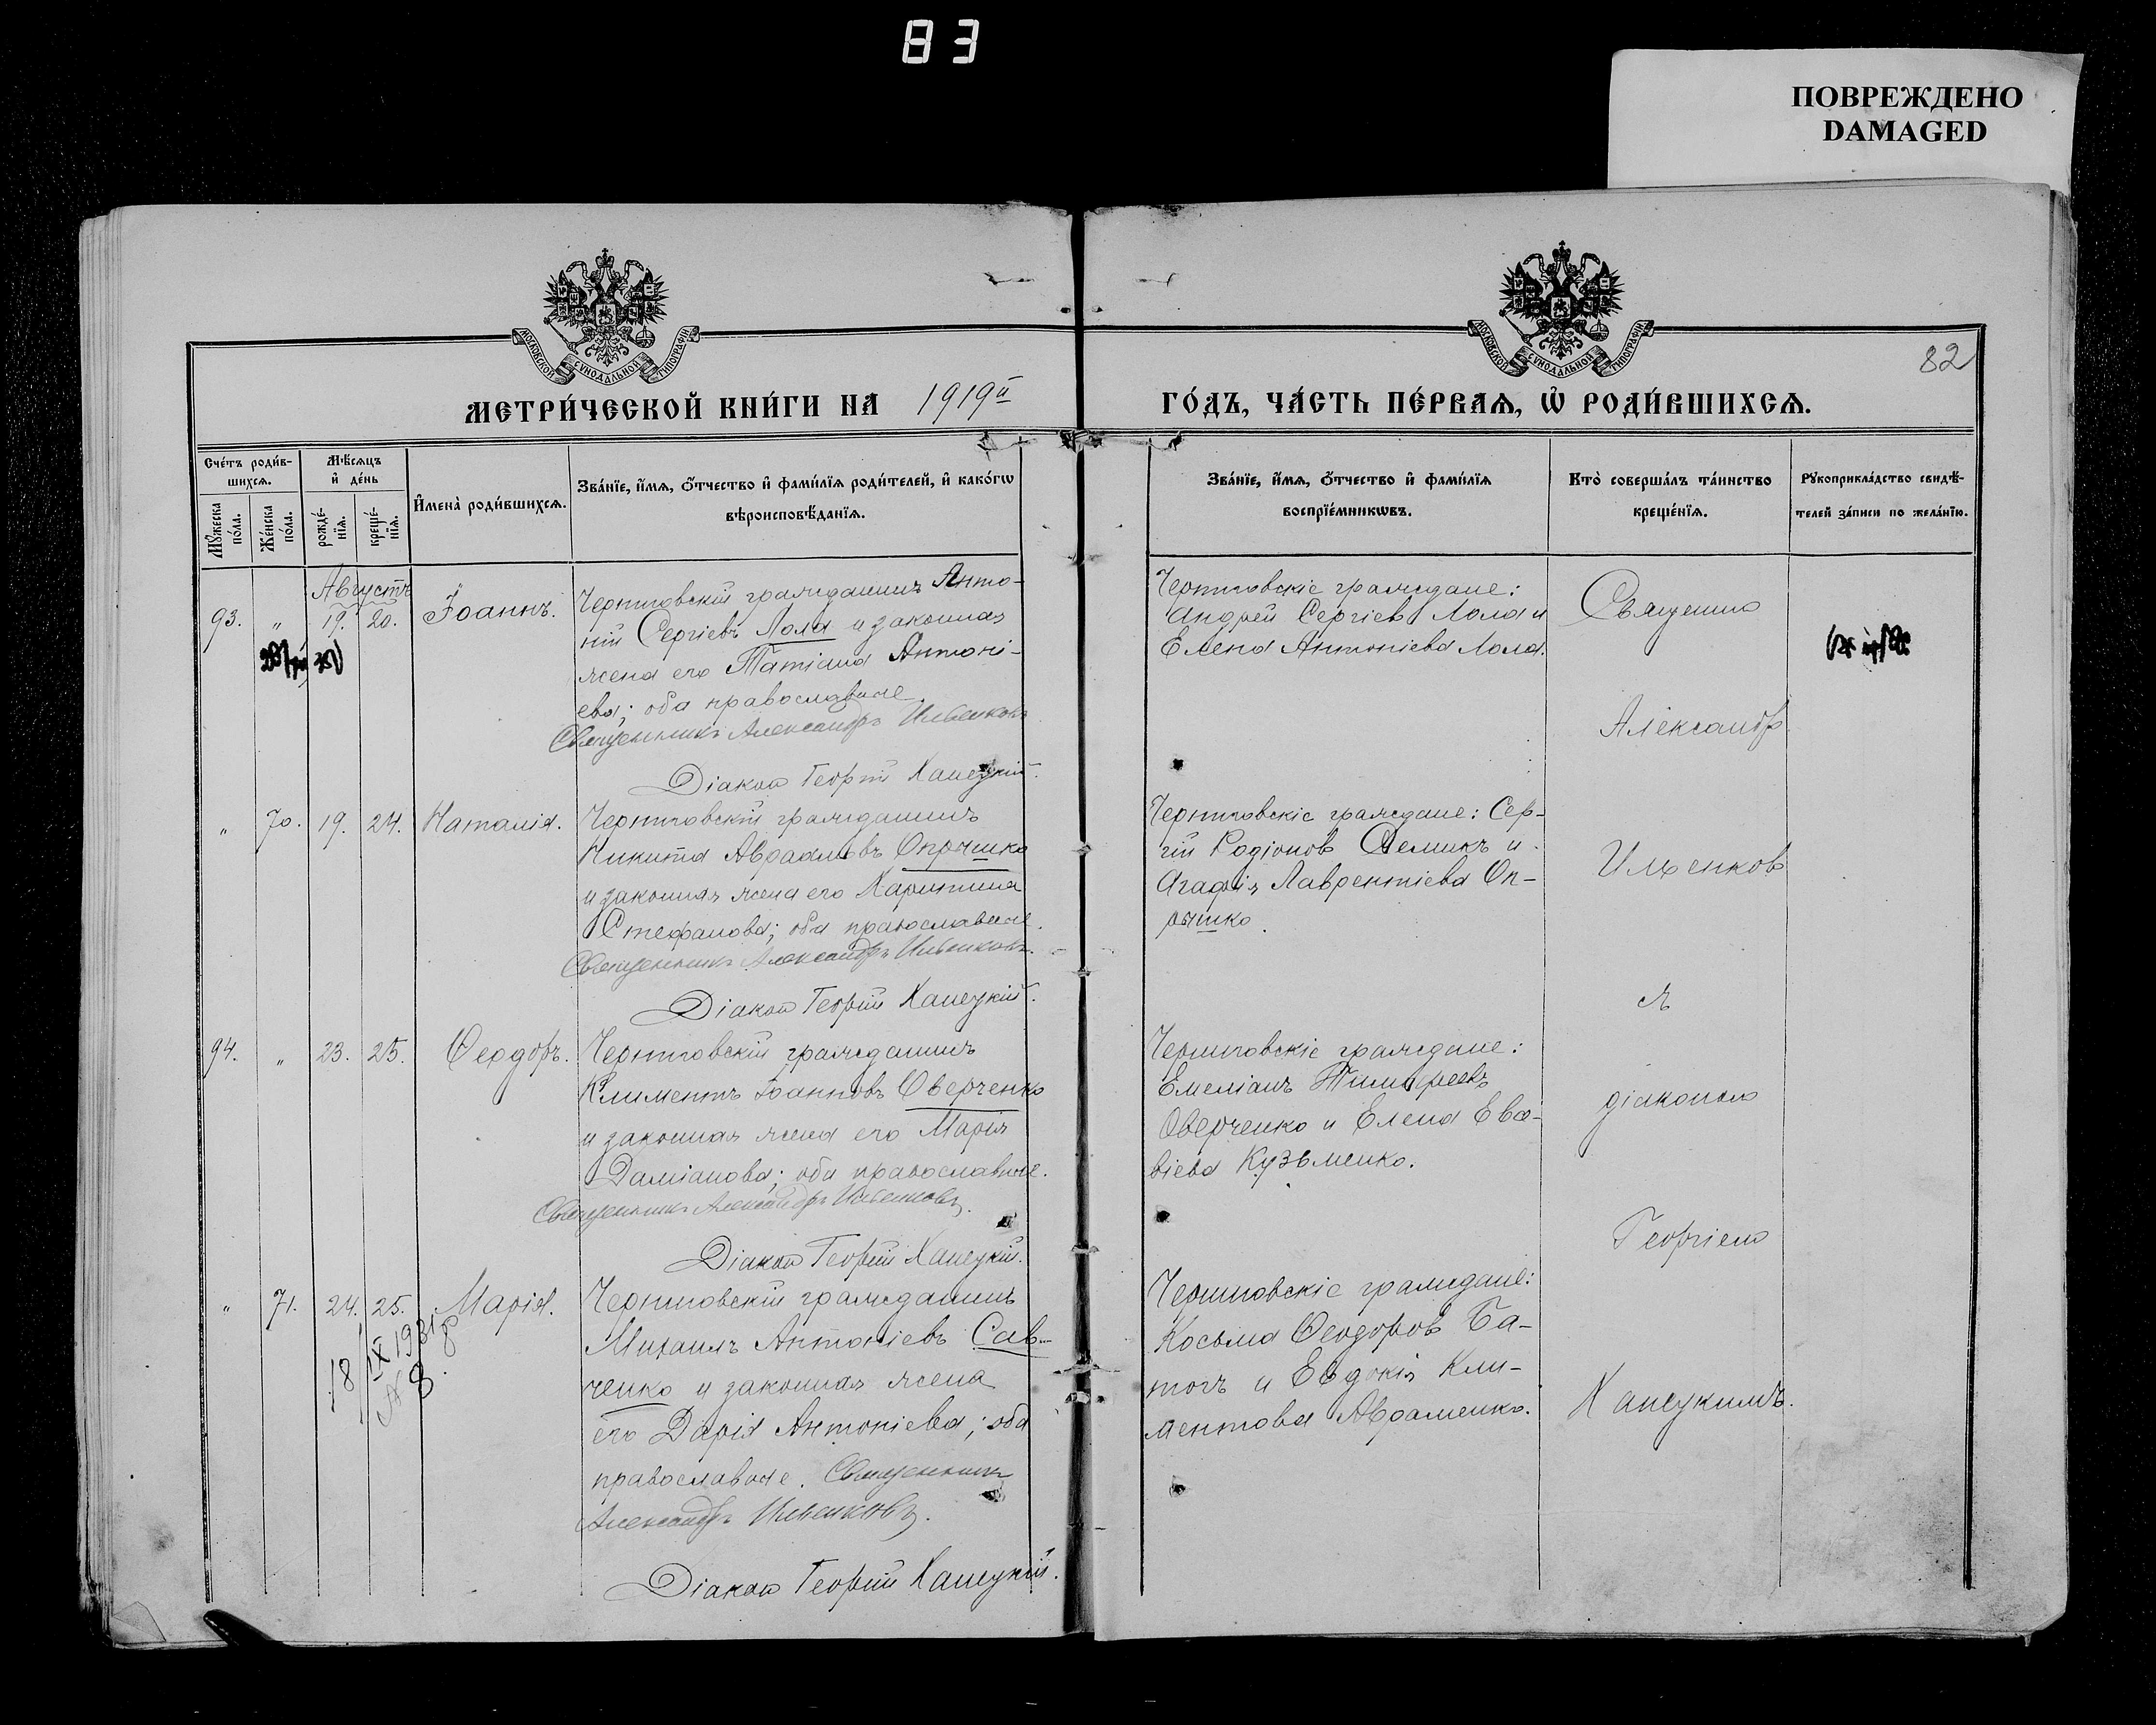 83
ПОВРЕЖДЕНО
DAMAGED
МОСКОВСКОЙ СѴНОДАЛЬНОЙ ТИПОГРАФІИ
МОСКОВСКОЙ СѴНОДАЛЬНОЙ ТИПОГРАФІИ
82
МЕТРИ́ЧЕСКОЙ КНИ́ГИ НА 1919й
ГО́ДЪ, ЧА́СТЬ ПЕ́РВАѦ, Ѡ҆ РОДИ́ВШИХСѦ.
Сче́тъ роди́в-
шихсѧ.
Мꙋ́жеска по́ла.
Же́нска по́ла.
Мѣ́сѧцъ и҆ де́нь
рожде́-
нїѧ.
креще́-
нїѧ.
И҆мена̀ роди́вшихсѧ.
Зва́нїе, и҆́мѧ, ѻ҆́тчество и҆ фами́лїѧ роди́телей, и҆ како́гѡ
вѣроисповѣ́данїѧ.
Зва́нїе, и҆́мѧ, ѻ҆́тчество и҆ фами́лїѧ
воспрїе́мникѡвъ.
Кто̀ соверша́лъ та́инство
креще́нїѧ.
Рꙋкоприкла́дство свидѣ́-
телей за́писи по жела́нїю.
Августъ
93. " 19. 20. Іоаннъ.
Черниговскій гражданинъ Анто-
ній Сергіевъ Лола и законная
жена его Татіана Антоні-
ева; оба православные.
Священникъ Александръ Ильенковъ
Діаконъ Георгій Ханецкій.
Черниговскіе граждане:
Андрей Сергіевъ Лола и
Елена Антоніева Лола.
" 70. 19. 24. Наталія.
Черниговскій гражданинъ
Никита Авраамовъ Опрышко
и законная жена его Харитина
Стефанова; оба православные.
Священникъ Александръ Ильенковъ.
Діаконъ Георгій Ханецкій.
Черниговскіе граждане: Сер-
гій Родіоновъ и
Агафія Лаврентіева Оп-
рышко.
94. " 23. 25. Ѳеодоръ.
Черниговскій гражданинъ
Климентъ Іоанновъ Оверченко
и законная жена его Марія
Даміанова; оба православные.
Священникъ Александръ Ильенковъ.
Діаконъ Георгій Ханецкій.
Черниговскіе граждане:
Емеліанъ Тимофеевъ
Оверченко и Елена
Кузьменко.
" 71. 24. 25. Марія.
18/IX 1931
№ 8
Черниговскій гражданинъ
Михаилъ Антоніевъ Сав-
ченко и законная жена
его Дарія Антоніева; оба
православные. Священникъ
Александръ Ильенковъ.
Діаконъ Георгій Ханецкій.
Черниговскіе граждане:
Косьма Ѳеодоровъ Ба-
тогъ и Евдокія Кли-
ментова Авраменко.
Священно
Александр
Ильенков
съ
діакономъ
Георгіемъ
Ханецкимъ.